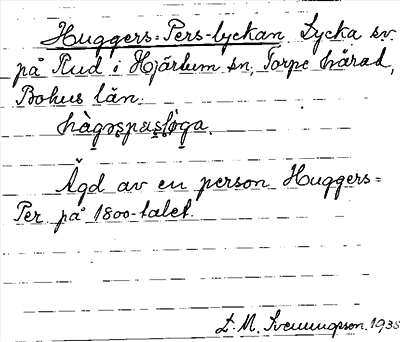 Huggers-Pers-lyckan. Lycka sv.
på Rud i Hjärtum sn, Torpe härad,
Bohus län.
Ägd av en person Huggers-
Per på 1800-talet.
L. M. Svenungsson. 1935